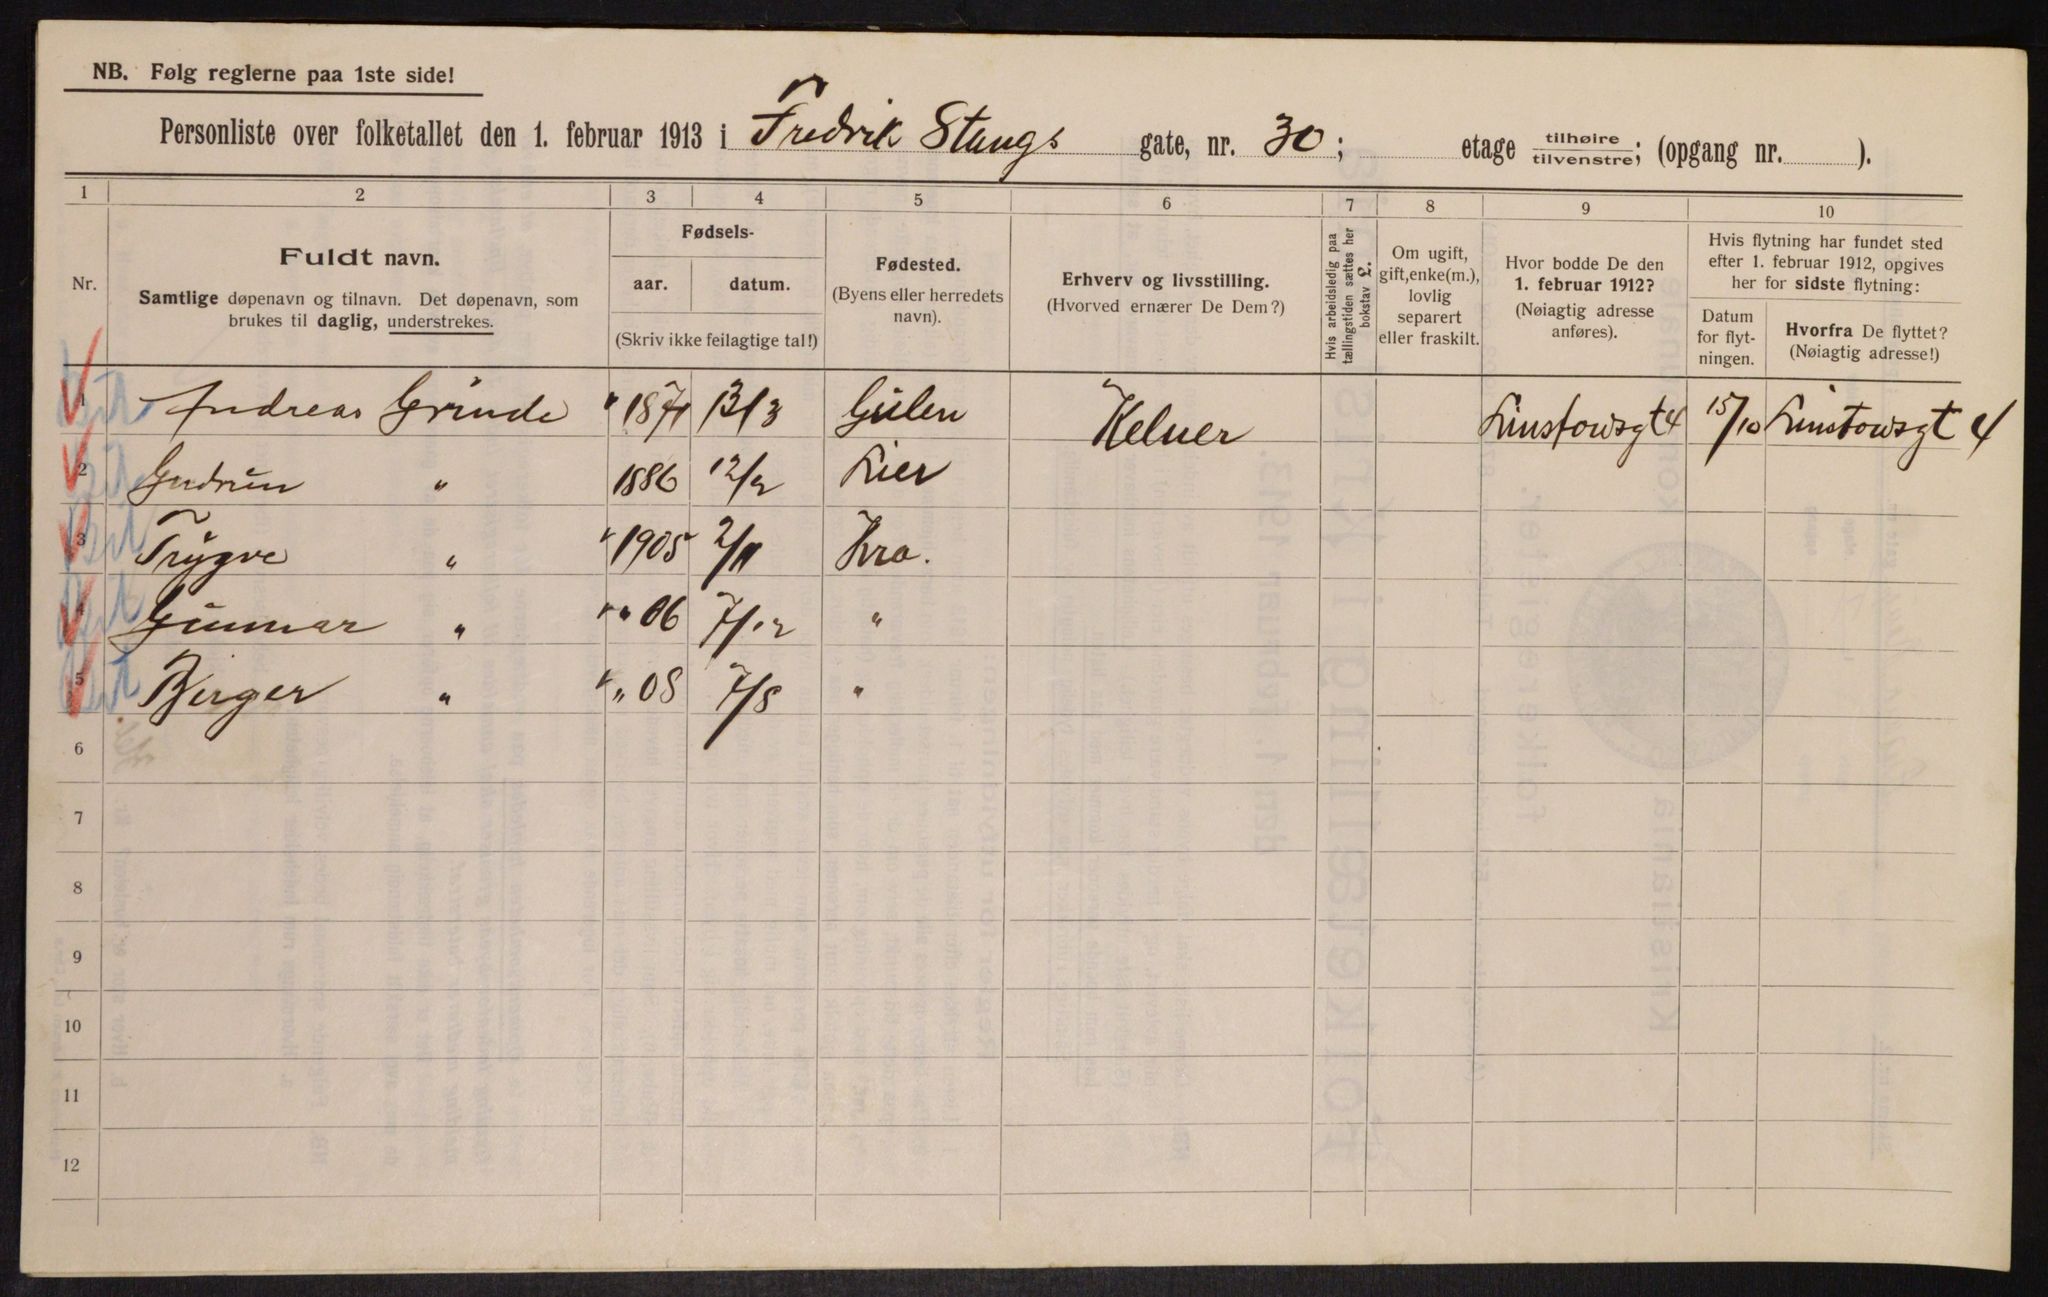 NB. Følg reglerne paa 1ste side!
Personliste over folketallet den 1. februar 1913 i Fredrik Stangs gate, nr. 30; etage tilhøire / tilvenstre; (opgang nr. ).
1 2 3 4 5 6 7 8 9 10
Nr.
Fuldt navn.
Samtlige døpenavn og tilnavn. Det døpenavn, som
brukes til daglig, understrekes.
Fødsels-
aar. datum.
(Skriv ikke feilagtige tal!)
Fødested.
(Byens eller herredets
navn).
Erhverv og livsstilling.
(Hvorved ernærer De Dem?)
Hvis arbeidsledig paa
tællingstiden sættes her
bokstav L.
Om ugift,
gift, enke(m.),
lovlig
separert
eller fraskilt.
Hvor bodde De den
1. februar 1912?
(Nøiagtig adresse
anføres).
Hvis flytning har fundet sted
efter 1. februar 1912, opgives
her for sidste flytning:
Datum
for flyt-
ningen.
Hvorfra De flyttet?
(Nøiagtig adresse!)
1 Andreas Grinde 1871 13/3 Gulen Kelner Linstowsgt 4 15/10 Linstowsgt 4
2 Gudrun " 1886 12/2 Lier
3 Trygve " 1905 2/11 Kra.
4 Gunnar " " 06 7/12 "
5 Birger " " 08 7/8 "
6
7
8
9
10
11
12